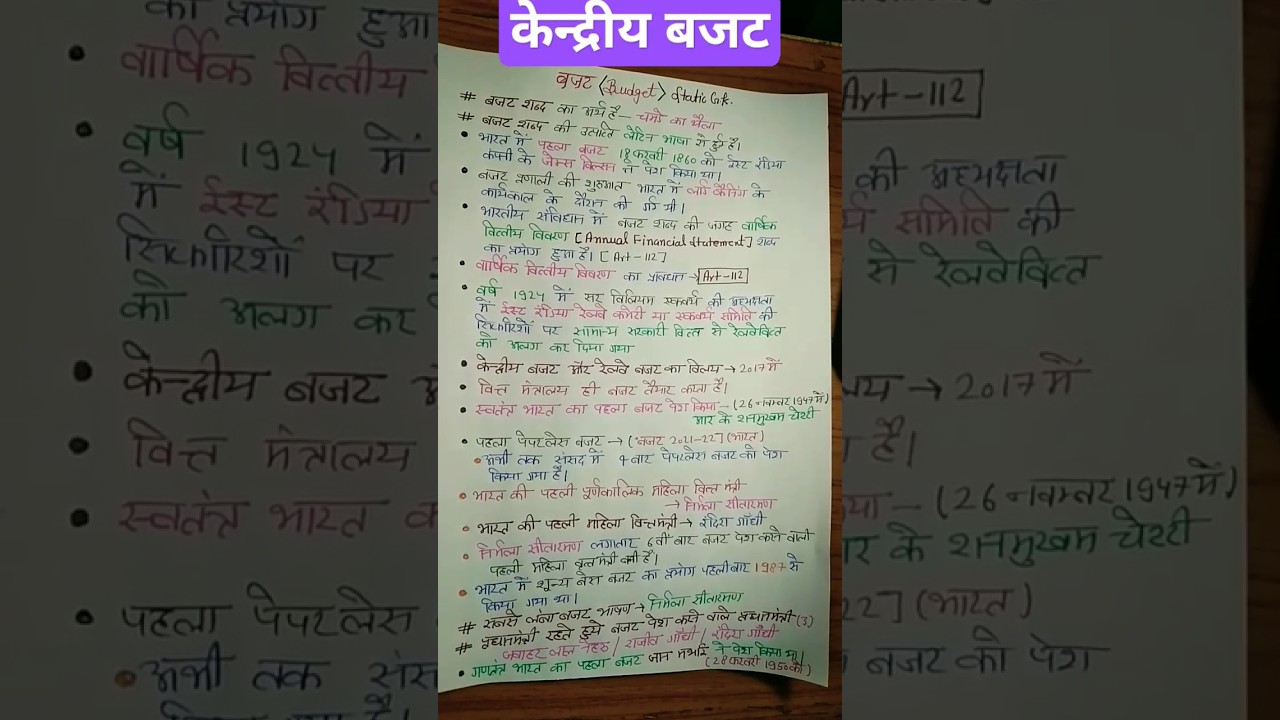 केन्द्रीय बजट
बजट <Budget> Static G.K.
# बजट शब्द का अर्थ है— चमड़े का थैला
# बजट शब्द की उत्पत्ति लेटिन भाषा से हुई है।
• भारत में पहला बजट 18 फरवरी 1860 को ईस्ट इंडिया
कंपनी के जेम्स विल्सन ने पेश किया था।
• बजट प्रणाली की शुरुआत भारत में लार्ड कैनिंग के
कार्यकाल के दौरान की गई थी।
• भारतीय संविधान में बजट शब्द की जगह वार्षिक
वित्तीय विवरण [Annual Financial Statement] शब्द
का प्रयोग हुआ है। [Art-112]
• वार्षिक वित्तीय विवरण का प्रावधान → Art-112
• वर्ष 1924 में सर विलियम एकवर्थ की अध्यक्षता
में ईस्ट इंडिया रेलवे कमेटी या एकवर्थ समिति की
सिफारिशों पर सामान्य सरकारी वित्त से रेलवेवित्त
को अलग कर दिया गया
• केन्द्रीय बजट और रेलवे बजट का विलय → 2017 में
• वित्त मंत्रालय ही बजट तैयार करता है।
• स्वतंत्र भारत का पहला बजट पेश किया — (26 नवम्बर 1947 में)
आर के शनमुखम चेट्टी
• पहला पेपरलेस बजट → (बजट 2021-22] (भारत)
• अभी तक संसद में 4 बार पेपरलेस बजट को पेश
किया गया है।
• भारत की पहली पूर्णकालिक महिला वित्त मंत्री
→ निर्मला सीतारमण
• भारत की पहली महिला वित्तमंत्री → इंदिरा गाँधी
• निर्मला सीतारमण लगातार 6वी बार बजट पेश करने वाली
पहली महिला मंत्री बनी है।
• भारत में शून्य बेस बजट का प्रयोग पहलीबार 1987 से
किया गया था।
# सबसे लंबा बजट भाषण → निर्मला सीतारमण
# प्रधानमंत्री रहते हुये बजट पेश करने वाले प्रधानमंत्री (3)
जवाहर लाल नेहरु / राजीव गाँधी / इंदिरा गाँधी
• गणतंत्र भारत का पहला बजट जान मथाई ने पेश किया था।
(28 फरवरी 1950 को)